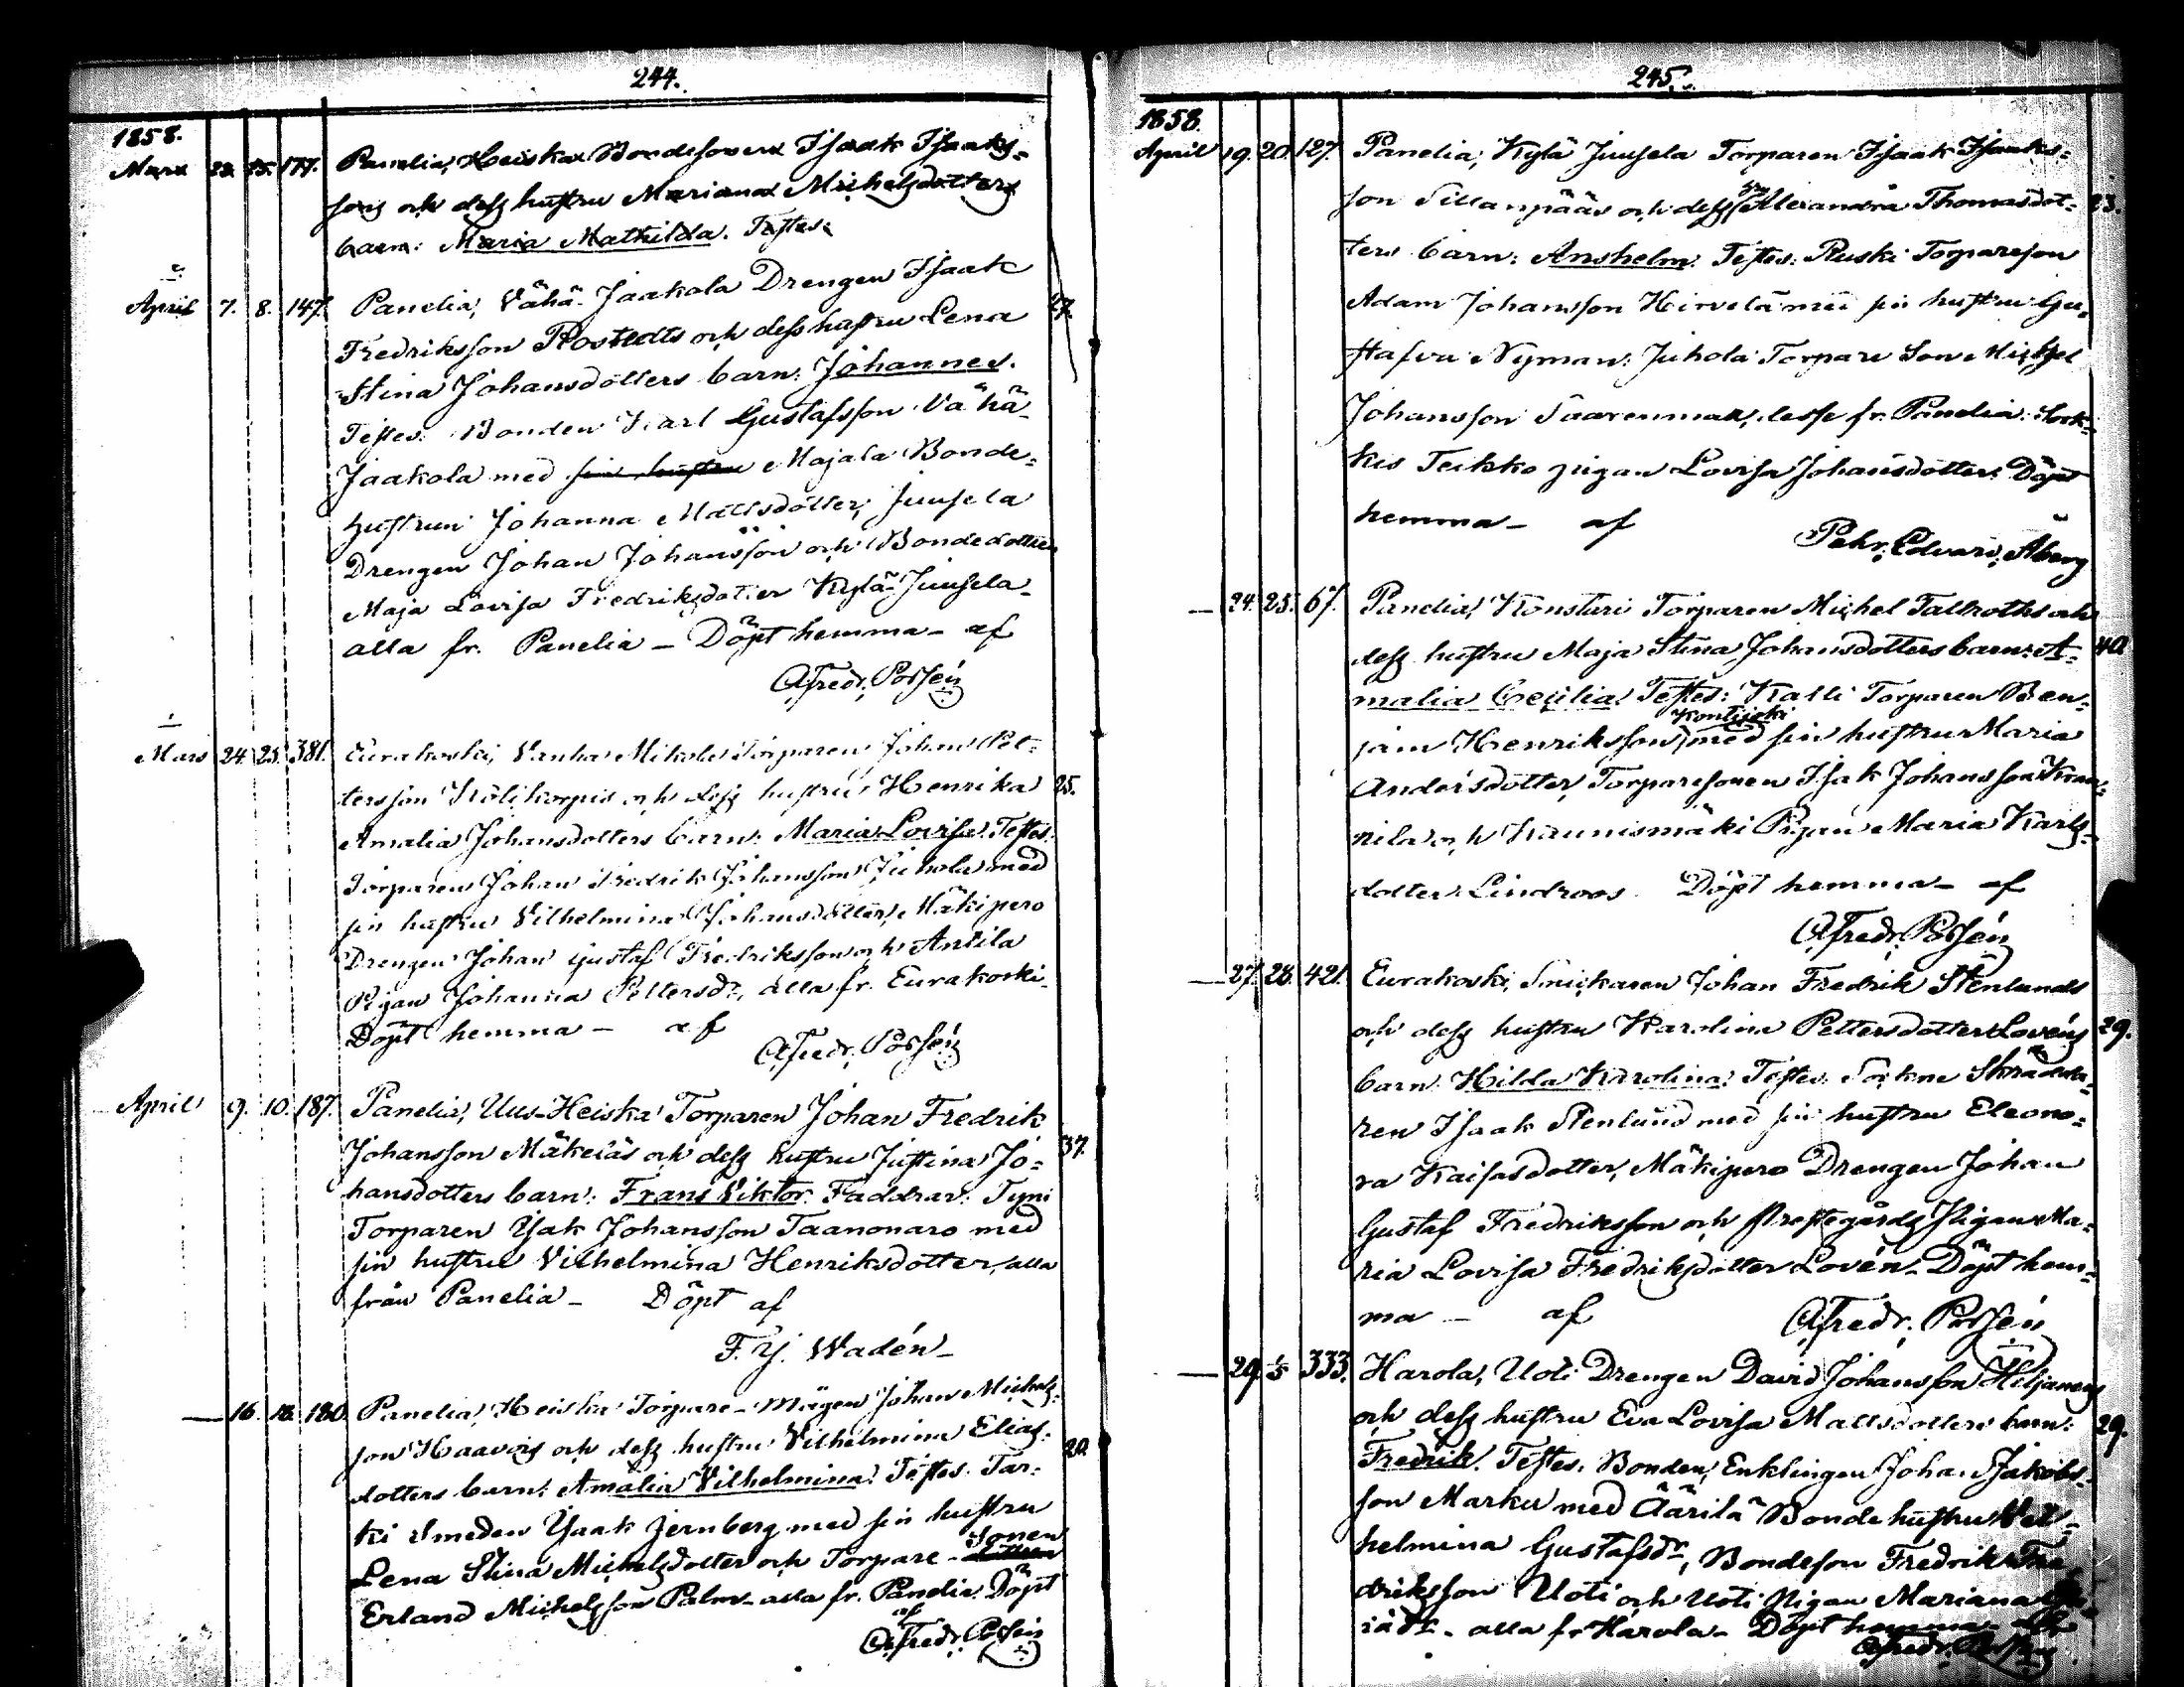 244.
1858.
Mars 23. 25. 177. Panelia, Heiska Bondesonen Isaak Isaaks-
sons och dess hustru Mariana Michelsdotters
barn: Maria Mathilda. Testes.
April 7. 8. 147. Panelia, Vähä-Jaakola Drengen Isaak
Fredriksson Rostedts och dess hustru Lena 27.
Stina Johansdotters barn: Johannes.
Testes: Bonden Karl Gustafsson Vähä-
Jaakola med sin hustru Majala Bonde-
hustrun Johanna Mattsdotter, Juusela
Drengen Johan Johansson och Bondedottren
Maja Lovisa Fredriksdotter Kylä-Juusela
alla fr. Panelia – Döpt hemma – af
A. Fredr. Possén
Mars 24. 25. 381. Eurakoski, Vanha Mikola Torparen Johan Pet-
tersson Kölikorpis och dess hustru Henrika 25.
Amalia Johansdotters barn: Maria Lovisa. Testes:
Torparen Johan Fredrik Johansson Juhola med
sin hustru Vilhelmina Johansdotter, Mäkipero
Drengen Johan Gustaf Fredriksson och Antila
Pigan Johanna Pettersdr, alla fr. Eurakoski
Döpt hemma – af
A. Fredr. Possén
April 9. 10. 187. Panelia, Uus-Heiska Torparen Johan Fredrik
Johansson Mäkeläs och dess hustru Justina Jo- 37.
hansdotters barn: Frans Viktor. Faddrar: Tyni
Torparen Isak Johansson Taanonaro med
sin hustru Vilhelmina Henriksdotter, alla
från Panelia – Döpt af
F. J. Wadén –
— 16. 18. 180. Panelia, Heiska Torpare-mågen Johan Michels-
son Haavois och dess hustru Vilhelmina Elias- 20.
dotters barn: Amalia Vilhelmina. Testes. Tar-
ki Smeden Isaak Jernberg med sin hustru
Lena Stina Michelsdotter och Torpare-Sonen
Erland Michelsson Palm – alla fr. Panelia. Döpt
af
A. Fredr. Possén
245.
1858.
April 19. 20. 127. Panelia, Kylä Juusela Torparen Isaak Isaaks-
son Sillanpääs och dess hru Alexandra Thomasdot- 23.
ters barn: Anshelm. Testes: Ruski Torpareson
Adam Johansson Hirvelä med sin hustru Gu-
stafva Nyman: Juhola Torpare Son Michel
Johansson Saarenmaa, desse fr. Panelia: Sork-
kis Teikko pigan Lovisa Johansdotter. Döpt
hemma – af
Pehr. Edvard. Åberg
— 24. 25. 67. Panelia, Konsturi Torparen Michel Tallroths och
dess hustru Maja Stina Johansdotters barn: A- 40.
malia Cecilia. Testes: Kalli Torparen Ben-
jam Henriksson Kontijoki med sin hustru Maria
Andersdotter, Torparesonen Isak Johansson Kran-
nila och Kaunismäki Pigan Maria Karls-
dotter Lindroos. Döpt hemma – af
A. Fredr. Possén
— 27. 28. 421. Eurakoski, Snickaren Johan Fredrik Stenlunds
och dess hustru Karolina Pettersdotter Lovéns 29.
barn: Hilda Karolina. Testes. Sockne Skrädda-
ren Isaak Stenlund med sin hustru Eleono-
ra Kaisasdotter, Mäkipero Drengen Johan
Gustaf Fredriksson och Prestegårds Pigan Ma-
ria Lovisa Fredriksdotter Lovén – Döpt hem-
ma – af
A. Fredr. Possén
— 29. 1/5 333. Harola, Uoti Drengen David Johansson Hiljanens
och dess hustru Eva Lovisa Mattsdotters barn: 29.
Fredrik. Testes. Bonden, Enklingen Johan Jakobs-
son Marku med Äärilä Bonde hustru Vil-
helmina Gustafsdr, Bondeson Fredrik Fre-
driksson Uoti och Uoti Pigan Mariana
alla fr Harola – Döpt hemma – af
A. Fredr. Possén